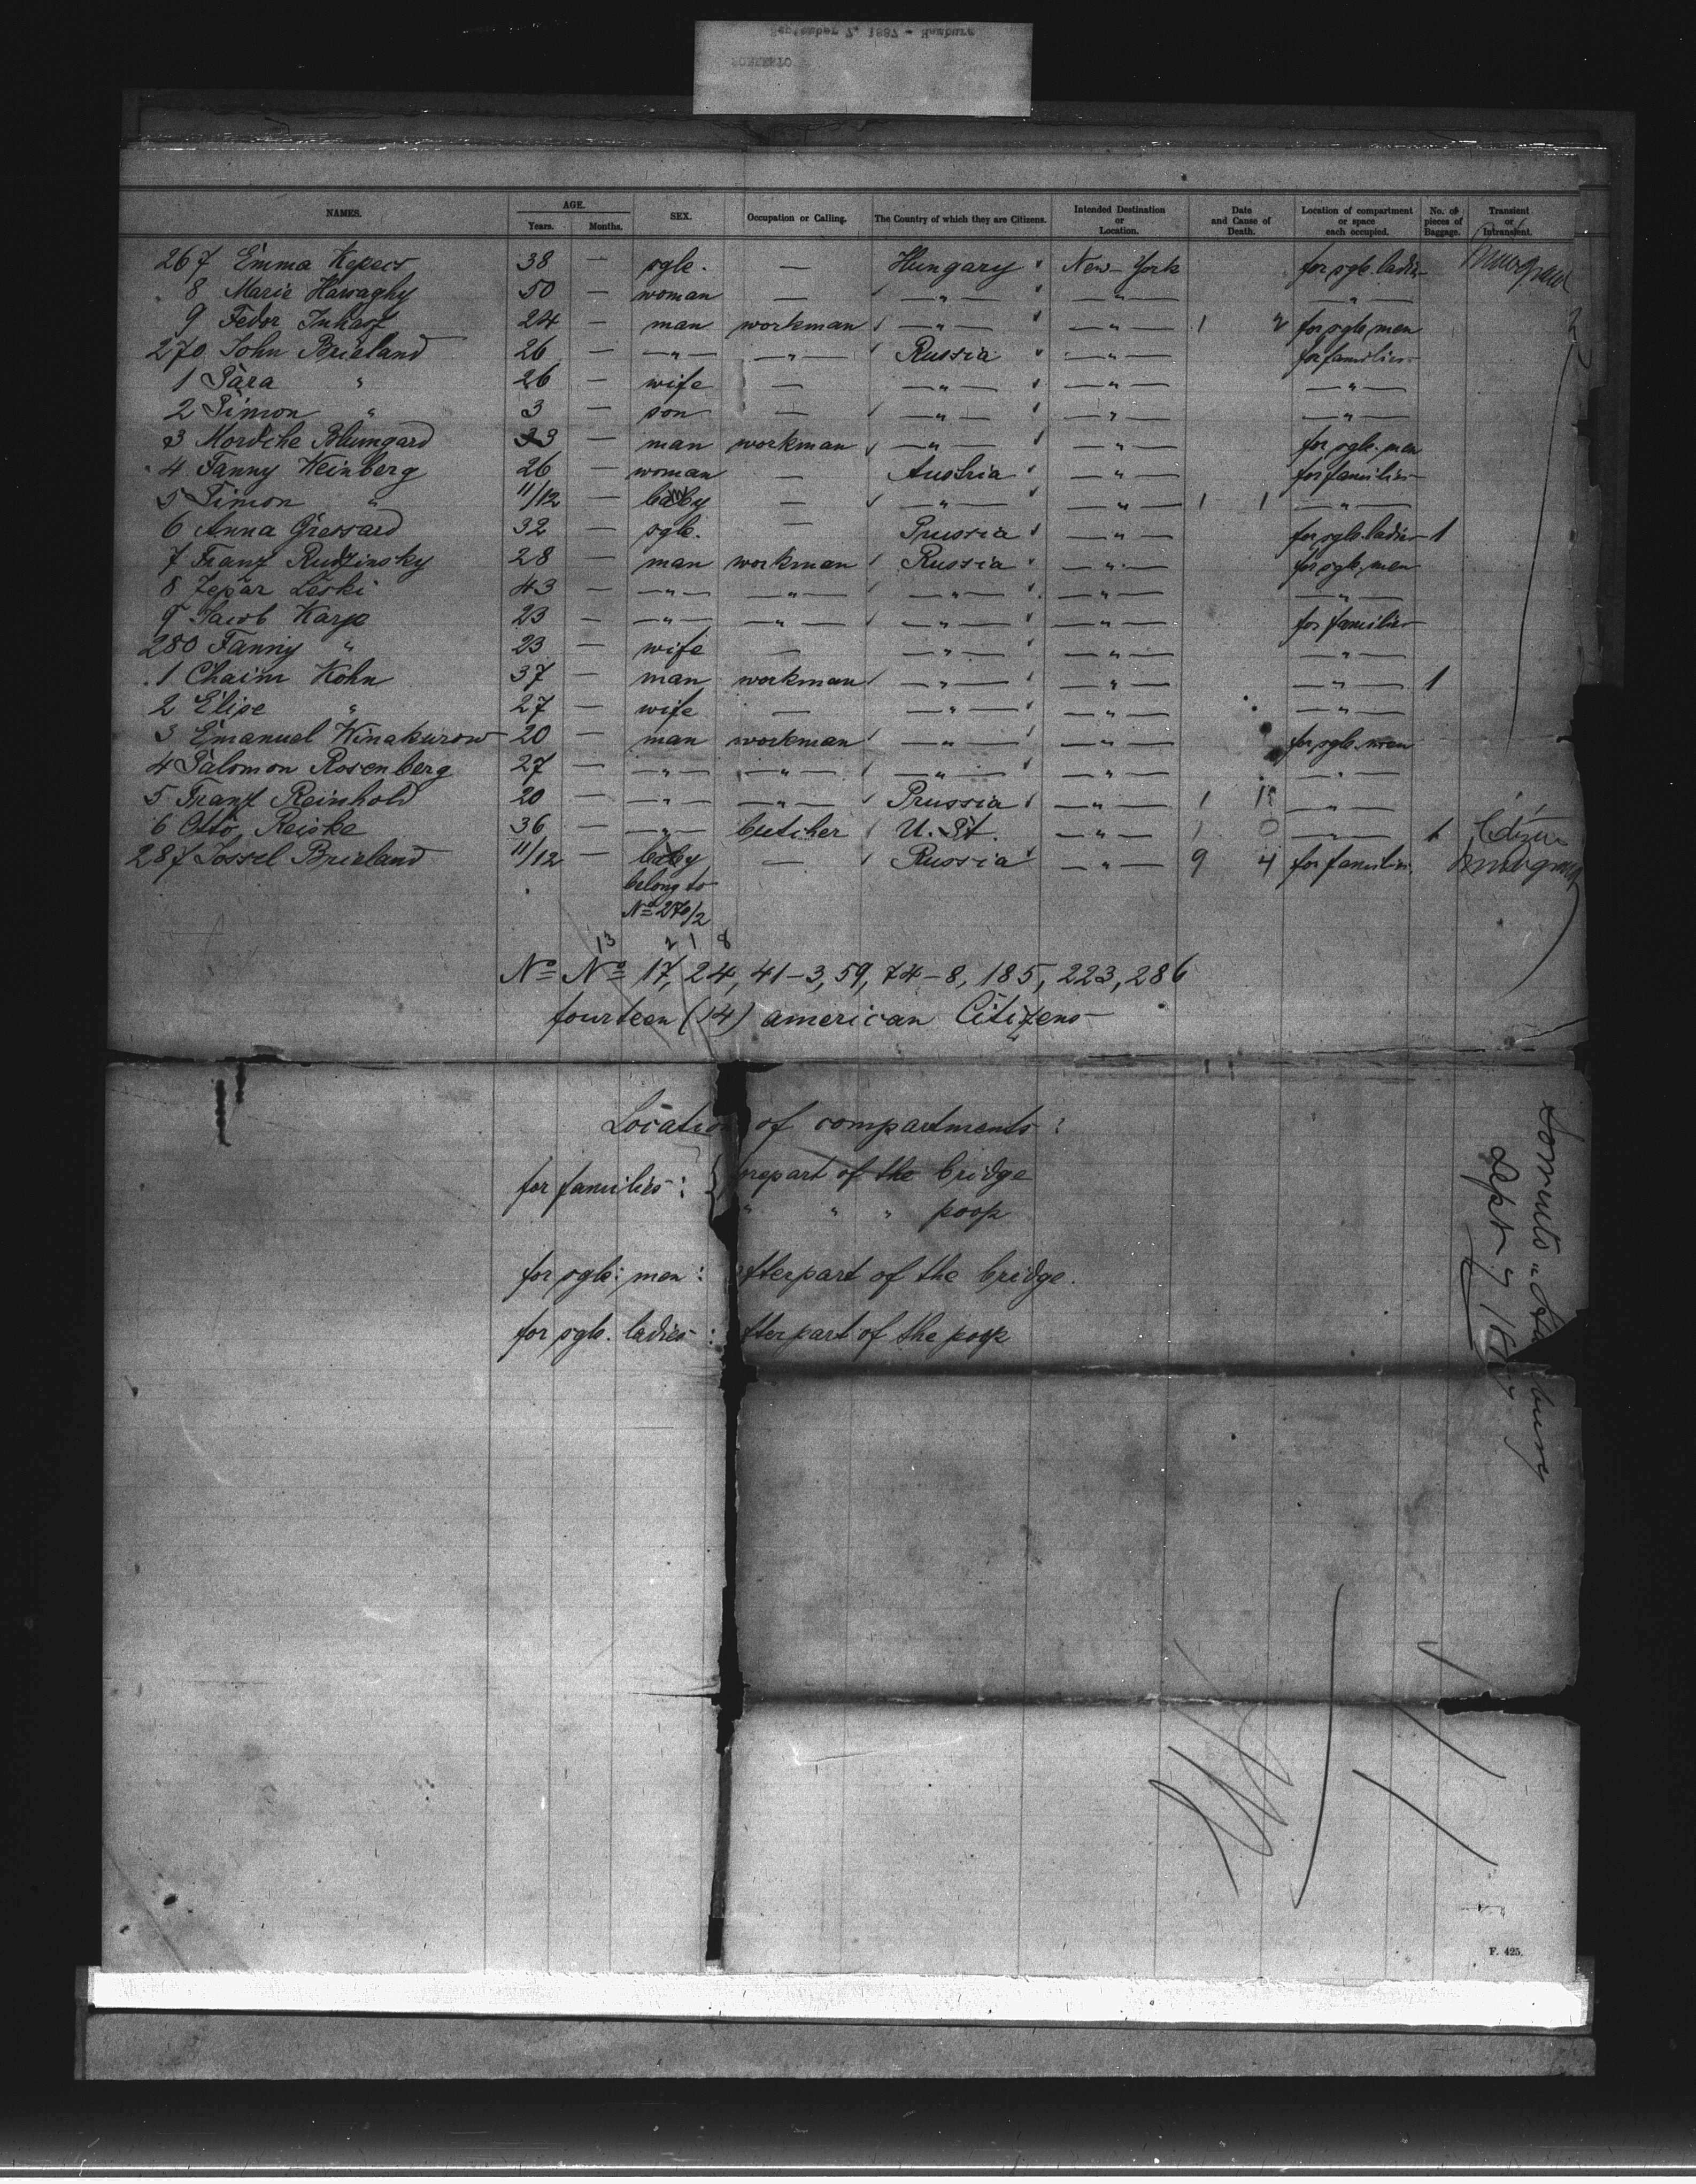 September 7, 1887 - Hamburg
SORRENTO
NAMES. AGE. Years. Months. SEX. Occupation or Calling. The Country of which they are Citizens. Intended Destination or Location. Date and Cause of Death. Location of compartment or space each occupied. No. of pieces of Baggage. Transient or Intransient.
267 Emma Kepecs 38 — sgle. — Hungary New-York for sgle. ladies
8 Marie Harsaghy 50 — woman — —"— —"— —"—
9 Fedor Inhasz 24 — man workman —"— —"— 1 2 for sgle men
270 John Brieland 26 — —"— —"— Russia —"— for families
1 Sara " 26 — wife — —"— —"— —"—
2 Simon " 3 — son — —"— —"— —"—
3 Mordche Blumgard 33 — man workman —"— —"— for sgle. men
4 Fanny Weinberg 26 — woman — Austria —"— for families
5 Simon " 11/12 — baby — —"— —"— 1 1 —"—
6 Anna Gressard 32 — sgle. — Prussia —"— for sgle. ladies 1
7 Franz Rudzinsky 28 — man workman Russia —"— for sgle. men
8 Zepar Leski 43 — —"— —"— —"— —"— —"—
9 Jacob Karp 23 — —"— —"— —"— —"— for families
280 Fanny " 23 — wife — —"— —"— —"—
1 Chaim Kohn 37 — man workman —"— —"— —"— 1
2 Elise " 27 — wife — —"— —"— —"—
3 Emanuel Winakurow 20 — man workman —"— —"— for sgle. men
4 Salomon Rosenberg 27 — —"— —"— —"— —"— —"—
5 Franz Reinhold 20 — —"— —"— Prussia —"— 1 —"—
6 Otto Reiske 36 — —"— butcher U. St. —"— 1 0 —"— 1 Citizen
287 Jossel Brieland 11/12 — baby — Russia —"— 9 4 for families
belong to
No 270/2
13 2 1 8
No No 17, 24, 41-3, 59, 74-8, 185, 223, 286
fourteen (14) american Citizens
Location of compartments:
for families: { forepart of the bridge
" " " poop
for sgle. men: afterpart of the bridge.
for sgle. ladies: afterpart of the poop
Sorrento - Hamburg
Sept 7 1887
F. 425.